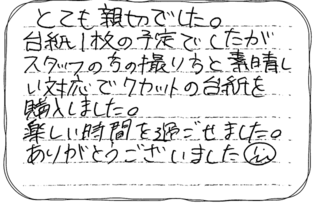 とても親切でした。
台紙1枚の予定でしたが
スタッフの方の撮り方と素晴し
い対応で7カットの台紙を
購入しました。
楽しい時間を過ごせました。
ありがとうございました